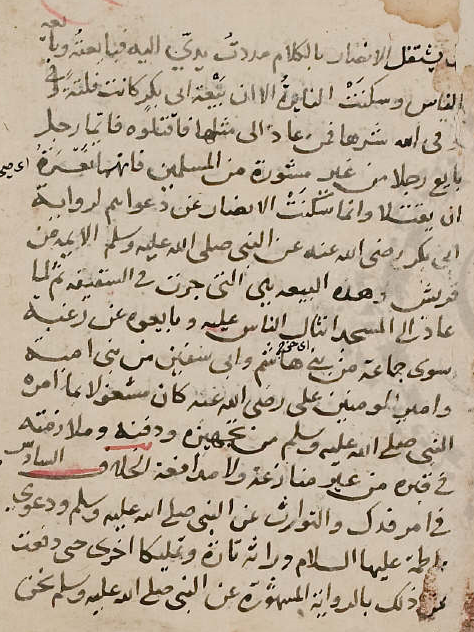 يشتغل الانصار بالكلام مددت يدي اليه فبايعته وبايعه
الناس وسكنت النايرة الا ان بيعة ابى بكر كانت فلتة وقى
الله شرها فمن عاد الى مثلها فاقتلوه فايما رجل
بايع رجلا من غير مشورة من المسلمين فانهما تغرة
ان يقتلا وانما سكنت الانصار عن دعواهم لرواية
ابى بكر رضى الله عنه عن النبى صلى الله عليه وسلم الايمة من
قريش وهذه البيعه هى التى جرت فى السقيفه ثم لما
عاد الى المسجد انثال الناس عليه وبايعوه عن رغبة
سوى جماعة من بنى هاشم وابى سفين من بنى امية
وامير المومنين على رضى الله عنه كان مشغولا بما امره
النبى صلى الله عليه وسلم من تجهيزه ودفنه وملازمته
فى قبره من غير منازعة ولا مدافعة الخلاف السادس
فى امر فدك والتوارث عن النبى صلى الله عليه وسلم ودعوى
فاطمة عليها السلام وراثة تارة وتمليكا اخرى حتى دفعت
عن ذلك بالرواية المشهورة عن النبى صلى الله عليه وسلم نحن